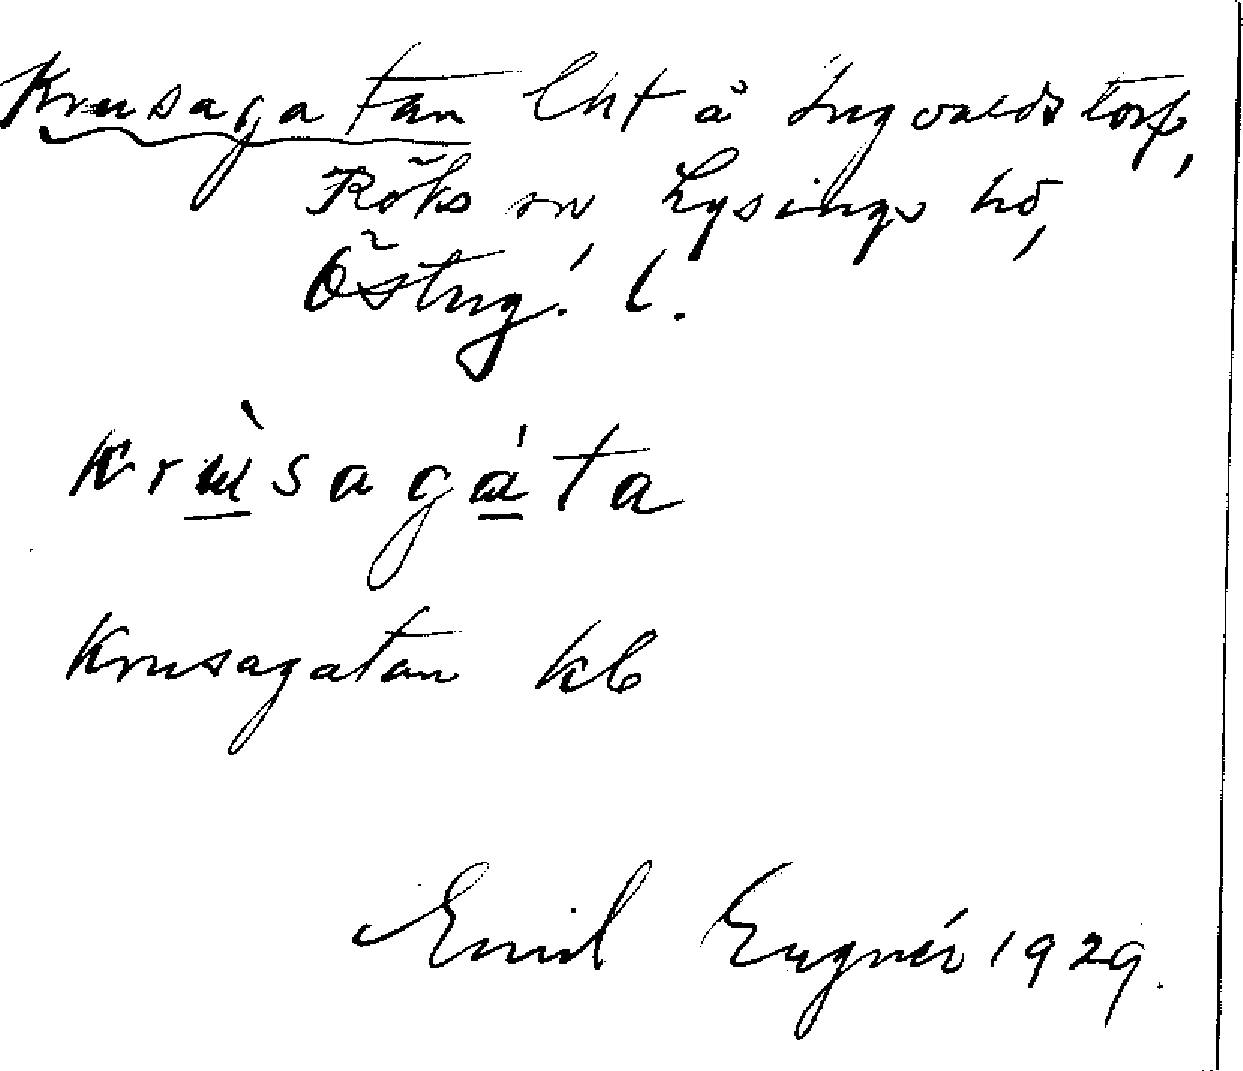 Krusagatan lht å Ingvaldstorp,
Röks sn Lysings hd,
Östrg. l.
Krùsagáta
Krusagatan kb
Emil Engnér 1929.